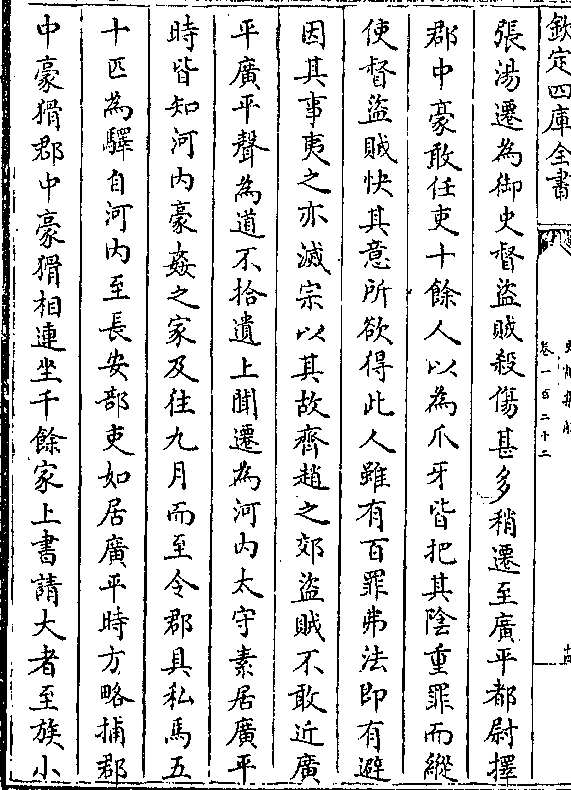 欽定四庫全書
卷一百二十二
張湯遷為御史督盜賊殺傷甚多稍遷至廣平都尉擇
郡中豪敢任吏十餘人以為爪牙皆把其陰重罪而縱
使督盜賊快其意所欲得此人雖有百罪弗法即有避
因其事夷之亦滅宗以其故齊趙之郊盜賊不敢近廣
平廣平聲為道不拾遺上聞遷為河內太守素居廣平
時皆知河內豪姦之家及往九月而至令郡具私馬五
十匹為驛自河內至長安部吏如居廣平時方略捕郡
中豪猾郡中豪猾相連坐千餘家上書請大者至族小